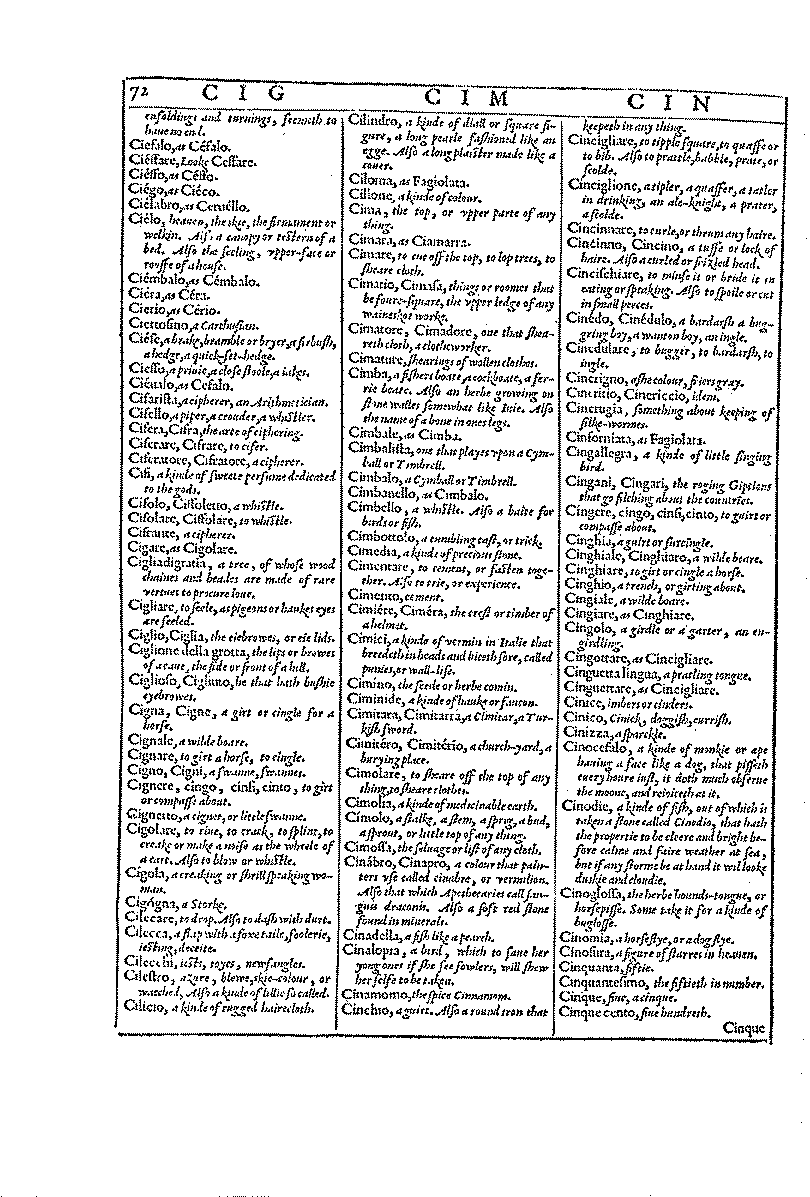 72 C I G C I M C I N
enfoldings and turnings, seemeth to
haue no end.
Ciefalo, as Céfalo.
Ciéffare, Looke Ceffare.
Ciéffo, as Céffo.
Ciégo, as Ciéco.
Cielabro, as Ceruéllo.
Ciélo, heauen, the skie, the firmament or
welkin. Also a canopy or testern of a
bed. Also the seeling, vpper-face or
rouffe of a house.
Ciémbalo, as Cémbalo.
Ciéra, as Céra.
Cierio, as Cério.
Ciertosino, a Carthusian.
a hedge, a quick-set-hedge.
Ciesso, a priuie, a close stoole, a iakes.
Cifarista, a cipherer, an Arithmetician.
Cifello, a piper, a crouder, a whistler.
Cifera, Cifra, the arte of ciphering.
Ciferare, Cifrare, to cifer.
Ciferatore, Cifratore, a cipherer.
Cifi, a kinde of sweete perfume dedicated
to the gods.
Cifolo, Ciffoletto, a whistle.
Cifolare, Ciffolare, to whistle.
Cifrante, a cipherer.
Cigare, as Cigolare.
Cigliadigratia, a tree, of whose wood
chaines and beades are made of rare
vertues to procure loue.
Cigliare, to seele, as pigeons or haukes eyes
are seeled.
Ciglio, Ciglia, the eiebrowes, or eie lids.
Ciglione della grotta, the lips or browes
of a caue, the side or front of a hill.
Ciglioso, Cigliuto, he that hath bushie
eyebrowes.
Cigna, Cigne, a girt or cingle for a
horse.
Cignale, a wilde boare.
Cignare, to girt a horse, to cingle.
Cigno, Cigni, a swanne, swannes.
Cignere, cingo, cinsi, cinto, to girt
or compasse about.
Cignetto, a cignet, or little swanne.
Cigolare, to riue, to crack, to splint, to
creake or make a noise as the wheele of
a cart. Also to blow or whistle.
Cigola, a creaking or shrill speaking wo-
man.
Cigógna, a Storke.
Cileccare, to drop. Also to dash with durt.
Cilecca, a flap with a foxe taile, foolerie,
iesting, deceite.
Cilecchi, iests, toyes, newfangles.
Cilestro, azure, blewe, skie-colour, or
watched. Also a kinde of lillie so called.
Cilicio, a kinde of rugged hairecloth.
Cilindro, a kinde of diall or square fi-
gure, a long pearle fashioned like an
egge. Also a long plaister made like a
Ciloma, as Fagiolata.
Cilione, a kinde of colour.
Cima, the top, or vpper parte of any
thing.
Cimara, as Ciamarra.
Cimare, to cut off the top, to lop trees, to
sheare cloth.
Cimatio, Cimasa, things or roomes that
be foure-square, the vpper ledge of any
wainskot worke.
Cimatore, Cimadore, one that shea-
reth cloth, a clothworker.
Cimature, shearings of wollen clothes.
Cimba, a fishers boate, a cockboate, a fer-
rie boate. Also an herbe growing on
stone walles somewhat like Iuie. Also
the name of a bone in ones legs.
Cimbale, as Cimba.
Cimbalista, one that playes vpon a Cym-
ball or Timbrell.
Cimbalo, a Cymball or Timbrell.
Cimbanello, as Cimbalo.
Cimbello, a whistle. Also a baite for
birds or fish.
Cimbottolo, a tumbling cast, or trick
Cimedia, a kinde of precious stone.
Cimentare, to cement, or fasten toge-
ther. Also to trie, or experience.
Cimento, cement.
Cimiére, Ciméra, the crest or timber of
a helmet.
Cimici, a kinde of vermin in Italie that
breedeth in beads and biteth sore, called
punies, or wall-lise.
Cimino, the seede or herbe comin.
Ciminide, a kinde of hauke or faucon.
Cimitara, Cimitarra, a Cimitar, a Tur-
kish sword.
Cimitéro, Cimitério, a church-yard, a
burying place.
Cimolare, to sheare off the top of any
thing, to sheare clothes.
Cimolia, a kinde of medicinable earth.
Cimolo, a stalke, a stem, a sprig, a bud,
a sprout, or little top of any thing.
Cimossa, the seluage or list of any cloth.
Cinábro, Cinapro, a colour that pain-
ters vse called cinabre, or vermilion.
Also that which Apothecaries call san-
guis draconis. Also a soft red stone
found in minerals.
Cinadella, a fish like a pearch.
Cinalopia, a bird, which to saue her
yong ones if she see fowlers, will shew
her selfe to be taken.
Cinamomo, the spice Cinnamom.
Cinchio, a guirt. Also a round iron that
keepeth in any thing.
Cincigliare, to tipple square, to quaffe or
to bib. Also to prattle, babble, prate, or
scolde.
Cinciglione, a tipler, a quaffer, a tatler
in drinking, an ale-knight, a prater,
a scolde.
Cincinnare, to curle, or thrum any haire.
Cincinno, Cincino, a tuffe or lock of
haire. Also a curled or frizled head.
Cincischiare, to minse it or bride it in
eating or speaking. Also to spoile or cut
in small peeces.
Cinédo, Cinédulo, a bardash a bug-
gring boy, a wanton boy, an ingle.
Cinedulare, to bugger, to bardash, to
ingle.
Cinerigno, ashe colour, friers gray.
Cineritio, Cinericcio, idem.
Cinerugia, something about keeping of
silke-wormes.
Cinforniata, as Fagiolata.
Cingallegra, a kinde of little singing
bird.
Cingani, Cingari, the roging Gipsians
that go filching about the countries.
Cingere, cingo, cinsi, cinto, to guirt or
compasse about.
Cinghia, a guirt or surcingle.
Cinghiale, Cinghiaro, a wilde boare.
Cinghiare, to girt or cingle a horse.
Cinghio, a trench, or girting about.
Cingiale, a wilde boare.
Cingiare, as Cinghiare.
Cingolo, a girdle or a garter, an en-
girdling.
Cingottare, as Cincigliare.
Cinguetta lingua, a pratling tongue.
Cinguettare, as Cincigliare.
Cinice, imbers or cinders.
Cinico, Cinick, doggish, currish.
Cinizza, a sparckle.
Cinocefalo, a kinde of monkie or ape
hauing a face like a dog, that pisseth
euery houre iust, it doth much obserue
the moone, and reioyceth at it.
Cinodie, a kinde of fish, out of which is
taken a stone called Cinodio, that hath
the propertie to be cleere and bright be-
fore calme and faire weather at sea,
but if any storme be at hand it will looke
duskie and cloudie.
Cinoglossa, the herbe hounds-tongue, or
horsepisse. Some take it for a kinde of
buglosse.
Cinomia, a horseflye, or a dog flye.
Cinosura, a figure of starres in heauen.
Cinquanta, fiftie.
Cinquantesimo, the fiftieth in number.
Cinque, fiue, a cinque.
Cinque cento, fiue hundreth.
Cinque